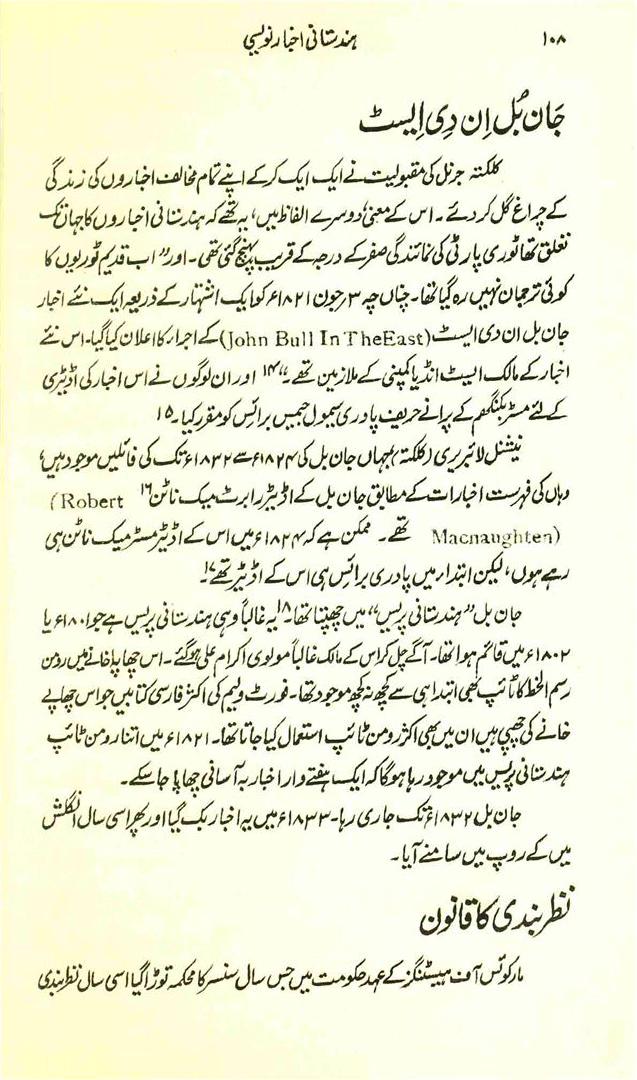 ۱۰۸ ہندستانی اخبار نویسی
جَان بُل اِن دِی اِیسٹ
کلکتہ جرنل کی مقبولیت نے ایک ایک کرکے اپنے تمام مخالف اخباروں کی زندگی
کے چراغ گل کر دئے۔ اس کے معنی، دوسرے الفاظ میں، یہ تھے کہ ہندستانی اخباروں کا جہاں تک
تعلق تھا ٹوری پارٹی کی نمائندگی صفر کے درجہ کے قریب پہنچ گئی تھی۔ اور "اب قدیم ٹوریوں کا
کوئی ترجمان نہیں رہ گیا تھا۔ چناں چہ ۳؍جون ۱۸۲۱ء کو ایک اشتہار کے ذریعہ ایک نئے اخبار
جان بل ان دی ایسٹ (John Bull In TheEast) کے اجراء کا اعلان کیا گیا۔ اس نئے
اخبار کے مالک ایسٹ انڈیا کمپنی کے ملازمین تھے۔"۱۴ اور ان لوگوں نے اس اخبار کی اڈیٹری
کے لئے مسٹر بکنگھم کے پرانے حریف پادری سیمول جیمس برائس کو مقرر کیا۔۱۵
نیشنل لائبریری (کلکتہ) جہاں جان بل کی ۱۸۲۴ء سے ۱۸۳۲ء تک کی فائلیں موجود ہیں،
وہاں کی فہرست اخبارات کے مطابق جان بل کے اڈیٹر رابرٹ میک ناٹن۱۶ (Robert
Macnaughten) تھے۔ ممکن ہے کہ ۱۸۲۴ء میں اس کے اڈیٹر مسٹر میک ناٹن ہی
رہے ہوں، لیکن ابتداء میں پادری برائس ہی اس کے اڈیٹر تھے۔۱۷
جان بل "ہندستانی پریس" میں چھپتا تھا۔۱۸ یہ غالباً وہی ہندستانی پریس ہے جو ۱۸۰۱ء یا
۱۸۰۲ء میں قائم ہوا تھا۔ آگے چل کر اس کے مالک غالباً مولوی اکرام علی ہو گئے۔ اس چھاپا خانے میں رومن
رسم الخط کا ٹائپ بھی ابتدا ہی سے کچھ نہ کچھ موجود تھا۔ فورٹ ولیم کی اکثر فارسی کتابیں جو اس چھاپے
خانے کی چھپی ہیں ان میں بھی اکثر رومن ٹائپ استعمال کیا جاتا تھا۔ ۱۸۲۱ء میں اتنا رومن ٹائپ
ہندستانی پریس میں موجود رہا ہوگا کہ ایک ہفتے وار اخبار بہ آسانی چھاپا جا سکے۔
جان بل ۱۸۳۲ء تک جاری رہا۔ ۱۸۳۳ء میں یہ اخبار بک گیا اور پھر اسی سال انگلش
مین کے روپ میں سامنے آیا۔
نظر بندی کا قانون
مارکوئس آف ہیسٹنگز کے عہد حکومت میں جس سال سنسر کا محکمہ توڑا گیا اسی سال نظر بندی